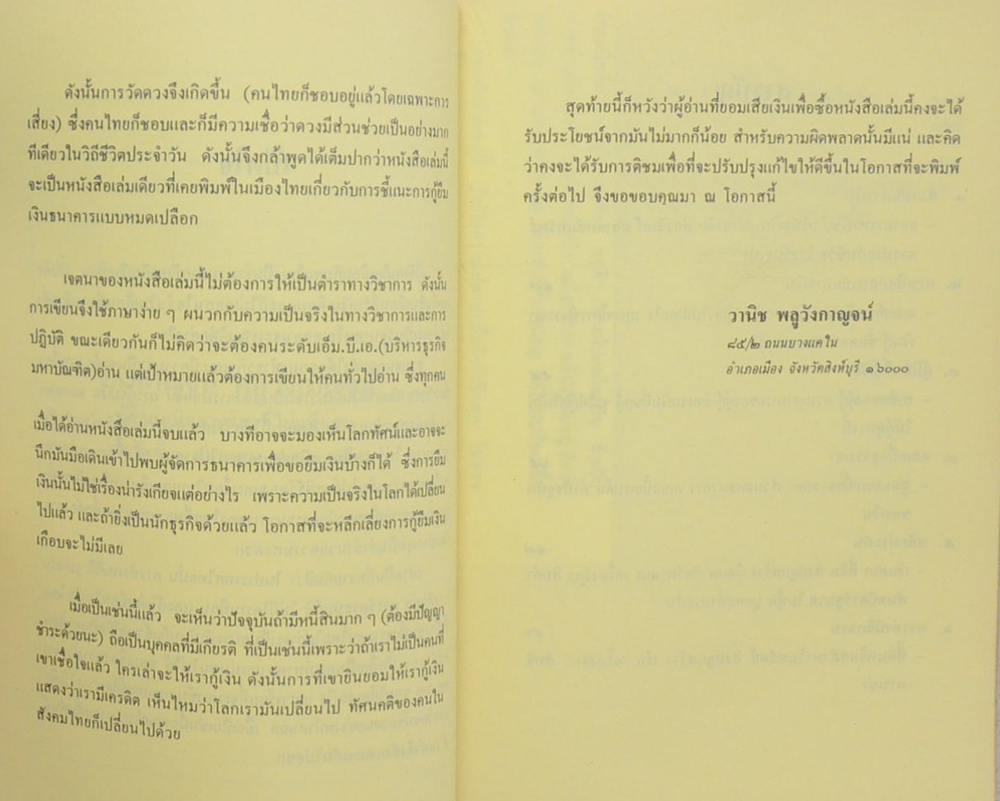 ดังนั้นการวัดดวงจึงเกิดขึ้น (คนไทยก็ชอบอยู่แล้วโดยเฉพาะการ
เสี่ยง) ซึ่งคนไทยก็ชอบและก็มีความเชื่อว่าดวงมีส่วนช่วยเป็นอย่างมาก
ทีเดียวในวิถีชีวิตประจำวัน ดังนั้นจึงกล้าพูดได้เต็มปากว่าหนังสือเล่มนี้
จะเป็นหนังสือเล่มเดียวที่เคยพิมพ์ในเมืองไทยเกี่ยวกับการชี้แนะการกู้ยืม
เงินธนาคารแบบหมดเปลือก
เจตนาของหนังสือเล่มนี้ไม่ต้องการให้เป็นตำราทางวิชาการ ดังนั้น
การเขียนจึงใช้ภาษาง่าย ๆ ผนวกกับความเป็นจริงในทางวิชาการและการ
ปฏิบัติ ขณะเดียวกันก็ไม่คิดว่าจะต้องคนระดับเอ็ม.บี.เอ.(บริหารธุรกิจ
มหาบัณฑิต)อ่าน แต่เป้าหมายแล้วต้องการเขียนให้คนทั่วไปอ่าน ซึ่งทุกคน
เมื่อได้อ่านหนังสือเล่มนี้จบแล้ว บางทีอาจจะมองเห็นโลกทัศน์และอาจจะ
นึกมันมือเดินเข้าไปพบผู้จัดการธนาคารเพื่อขอยืมเงินบ้างก็ได้ ซึ่งการยืม
เงินนั้นไม่ใช่เรื่องน่ารังเกียจแต่อย่างไร เพราะความเป็นจริงในโลกได้เปลี่ยน
ไปแล้ว และถ้ายิ่งเป็นนักธุรกิจด้วยแล้ว โอกาสที่จะหลีกเลี่ยงการกู้ยืมเงิน
เกือบจะไม่มีเลย
เมื่อเป็นเช่นนี้แล้ว จะเห็นว่าปัจจุบันถ้ามีหนี้สินมาก ๆ (ต้องมีปัญญา
ชำระด้วยนะ) ถือเป็นบุคคลที่มีเกียรติ ที่เป็นเช่นนี้เพราะว่าถ้าเราไม่เป็นคนที่
เขาเชื่อใจแล้ว ใครเล่าจะให้เรากู้เงิน ดังนั้นการที่เขายินยอมให้เรากู้เงิน
แสดงว่าเรามีเครดิต เห็นไหมว่าโลกเรามันเปลี่ยนไป ทัศนคติของคนใน
สังคมไทยก็เปลี่ยนไปด้วย
สุดท้ายนี้ก็หวังว่าผู้อ่านที่ยอมเสียเงินเพื่อซื้อหนังสือเล่มนี้คงจะได้
รับประโยชน์จากมันไม่มากก็น้อย สำหรับความผิดพลาดนั้นมีแน่ และคิด
ว่าคงจะได้รับการติชมเพื่อที่จะปรับปรุงแก้ไขให้ดีขึ้นในโอกาสที่จะพิมพ์
ครั้งต่อไป จึงขอขอบคุณมา ณ โอกาสนี้
วานิช พลูวังกาญจน์
๘๕/๒ ถนนบางแคใน
อำเภอเมือง จังหวัดสิงห์บุรี ๑๖๐๐๐